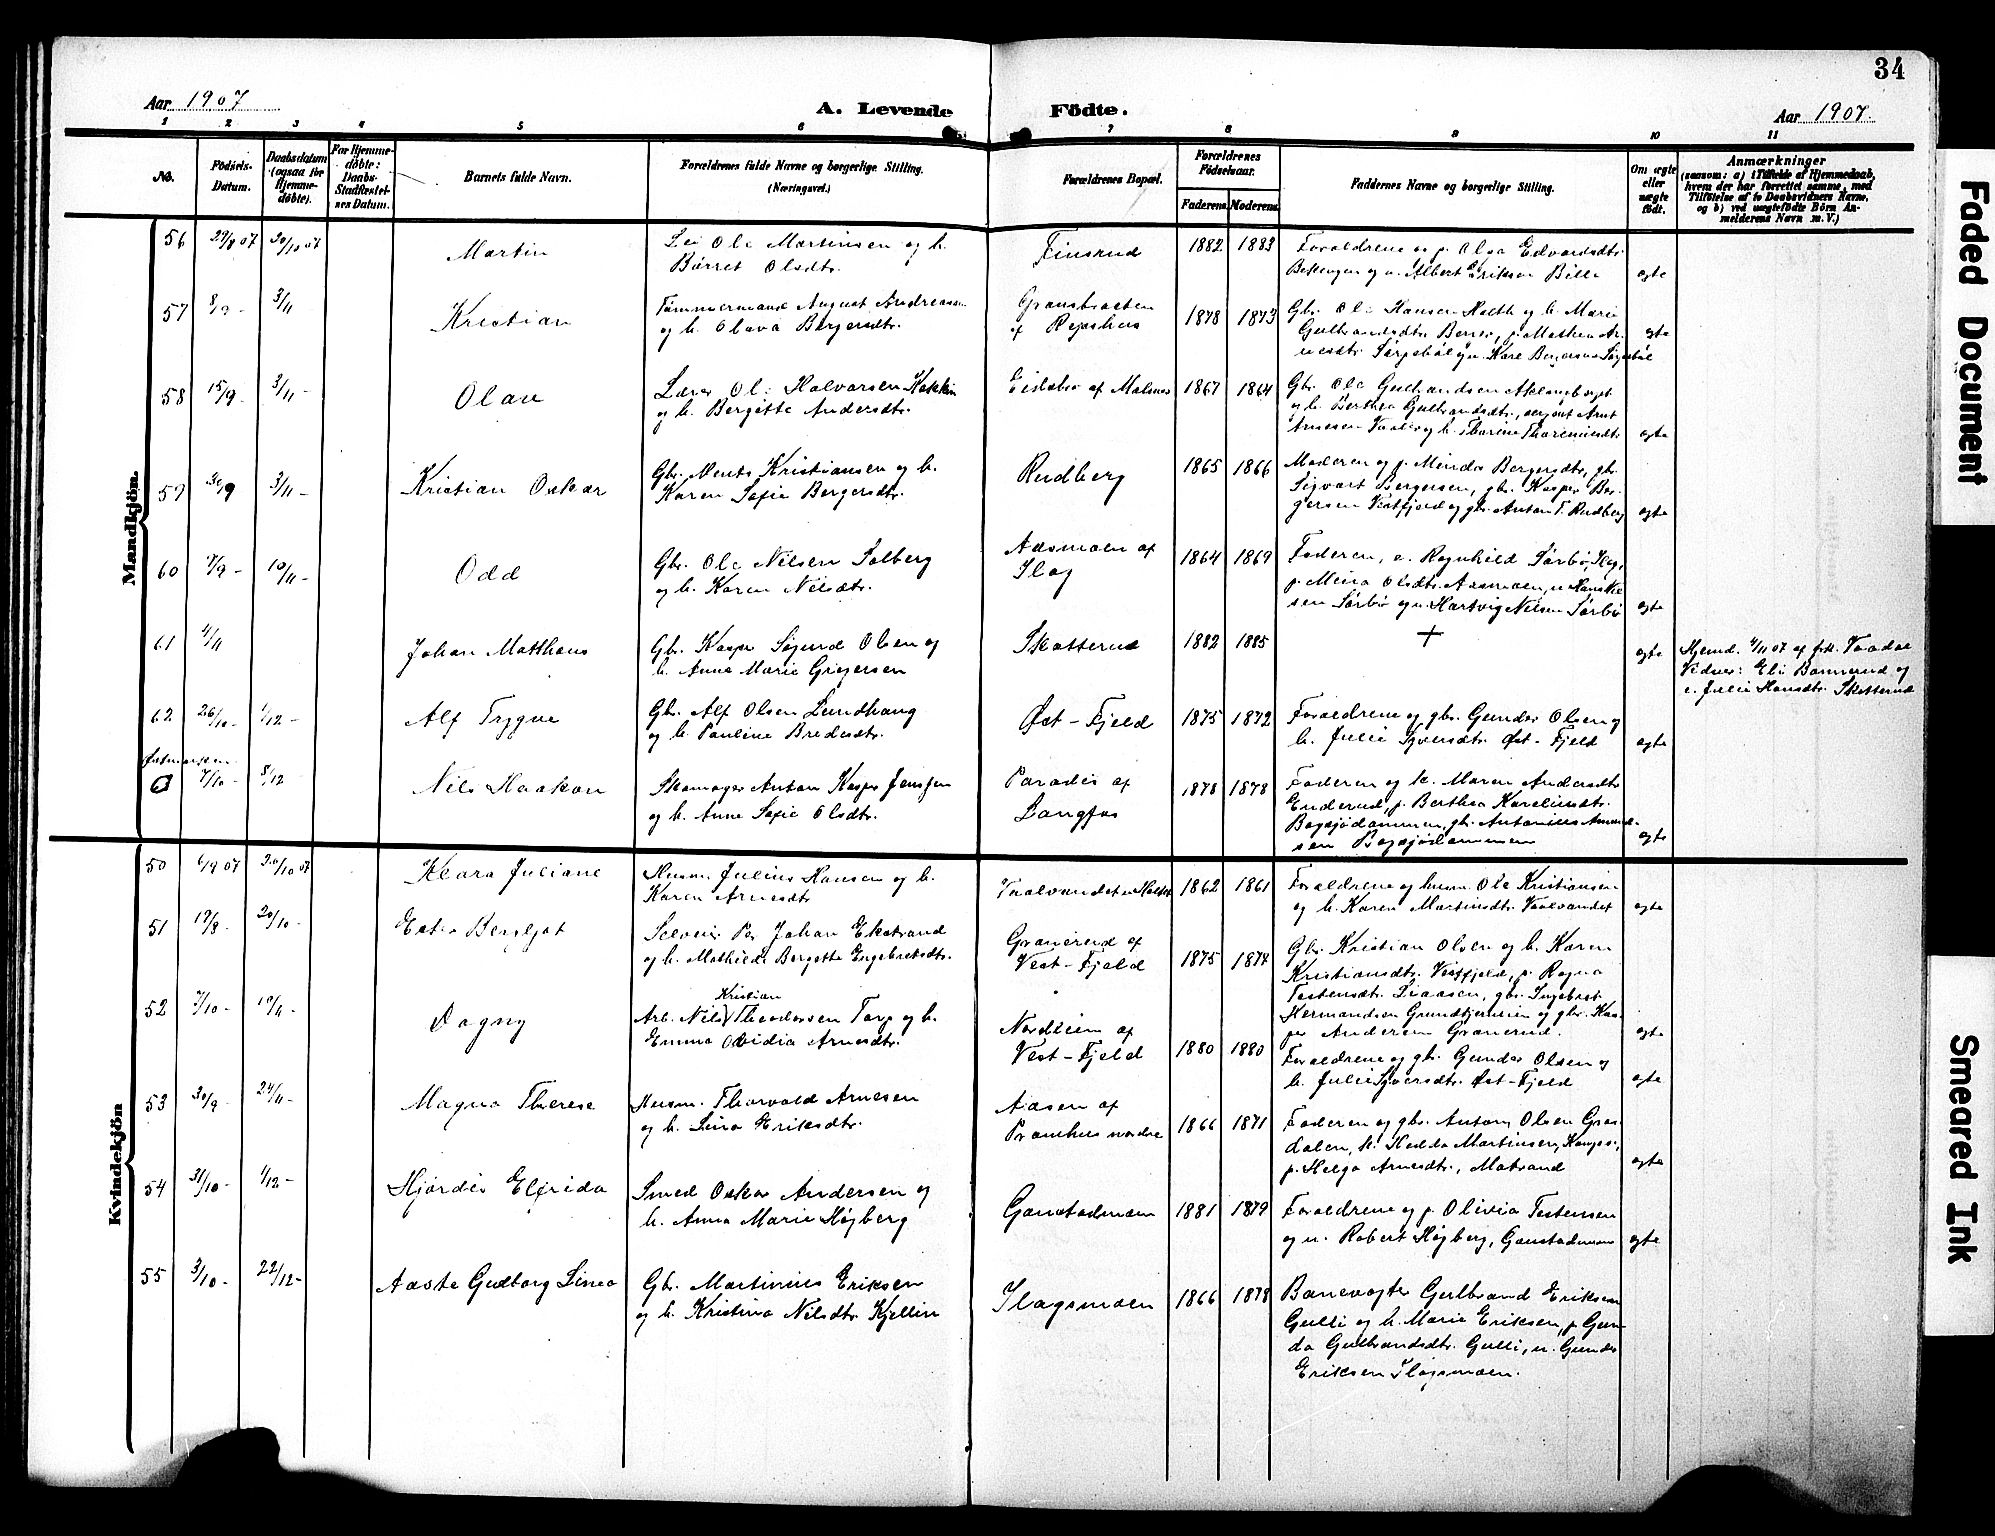 34
Aar 1907
A. Levende
Födte.
Aar 1907.
1 2 3 4 5 6 7 8 9 10 11
No.
Födsels-
Datum.
Daabsdatum
(ogsaa for
Hjemme-
döbte).
For Hjemme-
döbte:
Daabs-
Stadfæstel-
ses Datum.
Barnets fulde Navn.
Forældrenes fulde Navne og borgerlige Stilling.
(Næringsvei.)
Forældrenes Bopæl.
Forældrenes
Födselsaar.
Faderens. Moderens.
Faddernes Navne og borgerlige Stilling.
Om ægte
eller
uægte
födt.
Anmærkninger
(saasom: a) i Tilfælde af Hjemmedaab,
hvem der har forrettet samme, med
Tilföielse af to Daabsvidners Navne,
og b) ved uægtefödte Börn An-
melderens Navn m. V.)
Mandkjön.
56 29/8 07 20/10 07
Martin
Ole Martinsen og h.
Børret Olsdtr.
Finsrud
1882 1883
Forældrene og p. Olga Edvardsdtr.
og u. Albert Eriksen
ægte
57 8/9 - 3/11
Kristian
Tømmermand August Andreassen
og h. Olava Bergersdtr.
af Repshus
1878 1873
Gbr. Ole Hansen og h. Marie
Gulbrandsdtr. p. Mathea Ar-
nesdtr. og u. Kare Bergersen
ægte
58 15/9 - 3/11 -
Olav
Lærer Ole Halvorsen
og h. Bergitte Andersdtr.
af Malsnes
1867 1864
Gbr. Ole Gulbrandsen
og h. Berthea Gulbrandsdtr., sergent Arnt
Arnesen og h. Thorine
ægte
59 30/9 3/11 -
Kristian Oskar
Gbr. Ments Kristiansen og h.
Karen Sofie Bergersdtr.
Rudberg
1865 1866
Moderen og p. Minda Bergersdtr., gbr.
Sigvart Bergersen, gbr. Kasper Ber-
gersen Vestfjeld og gbr. Anton T. Rudberg
ægte
60 7/9 - 10/11 -
Odd
Gbr. Ole Nilsen Solberg
og h. Karen Nilsdtr.
Aasmoen af
Flag
1864 1869
Faderen, e. Ragnhild Sørbø, Flag,
p. Mina Olsdtr. Aasmoen, u. Hans
sen Sørbø og u. Hartvig Nilsen Sørbø
ægte
61 4/11
Johan Matthæus
Gbr. Kasper Sigurd Olsen og
h. Anne Marie Gregersen
Skotterud
1882 1885
+
ægte
Hjemd. 4/11 07 af
Vidner: Eli og
e. Julie Hansdtr. Skotterud
62 26/10 - 1/12 -
Alf Trygve
Gbr. Alf Olsen Lundhaug
og h. Pauline Bredesdtr.
Øst-Fjeld
1875 1872
Forældrene og gbr. Gunder Olsen og
h. Julie Syversdtr. Øst-Fjeld
ægte
7/10 - 8/12
Nils Haakon
Skomager Anton Kasper Jenssen
og h. Anne Sofie Olsdtr.
Paradis af
Langfos
1878 1878
Faderen og h. Maren Andersdtr.
Enderud, p. Berthea Karelinsdtr.
Bogsjødammen, gbr. Antonius
sen Bogsjødammen
ægte
Kvindekjön
50 6/9 07 20/10 07
Klara Juliane
Husm. Julius Hansen og h.
Karen Arnesdtr.
1862 1861
Forældrene og husm. Ole Kristiansen
og h. Karen Martinsdtr. Vaalvandet
ægte
51 19/8 - 20/10 -
Ester Bergljot
Per Johan Ekstrand
og h. Mathilde Bergette Engebretsdtr.
Granerud af
Vest-Fjeld
1875 1874
Gbr. Kristian Olsen og h. Karen
Kristiansdtr. Vestfjeld, p. Ragna
Tostensdtr. Liaasen, gbr. Ingebret
Hermandsen og gbr. Kas-
per Andersen Granerud.
ægte
52 7/10 - 10/11 -
Dagny
Kristian
Arb. Nils Theodorsen Torp og h.
Emma Ovidia Arnesdtr.
Nordheim af
Vest-Fjeld
1880 1880
Forældrene og gbr. Gunder Olsen og
h. Julie Syversdtr. Øst-Fjeld
ægte
53 30/9 - 24/11 -
Magna Therese
Husm. Thorvald Arnesen
og h. Lina Eriksdtr.
Aasen af
Pramhus nordre
1866 1871
Faderen og gbr. Anton Olsen Gras-
dalen, h. Hedda Martinsen,
p. Helga Arnesdtr., Matrand
ægte
54 31/10 - 1/12 -
Hjørdis Elfrida
Smed Oskar Andersen og
h. Anna Marie Højberg
Gaustadmoen
1881 1879
Forældrene og p. Olivia Tostensen
og u. Robert Højberg, Gaustadmoen
ægte
55 3/10 - 22/12 -
Aaste Gudborg Linea
Gbr. Martinius Eriksen
og h. Kristina Nilsdtr. Kjellin
Flagsmoen
1866 1878
Banevogter Gulbrand Eriksen
Gulli og h. Marie Eriksen, p. Gun-
da Gulbrandsdtr. Gulli, u. Gunder
Eriksen Flagsmoen.
Faded Document
Smeared Ink